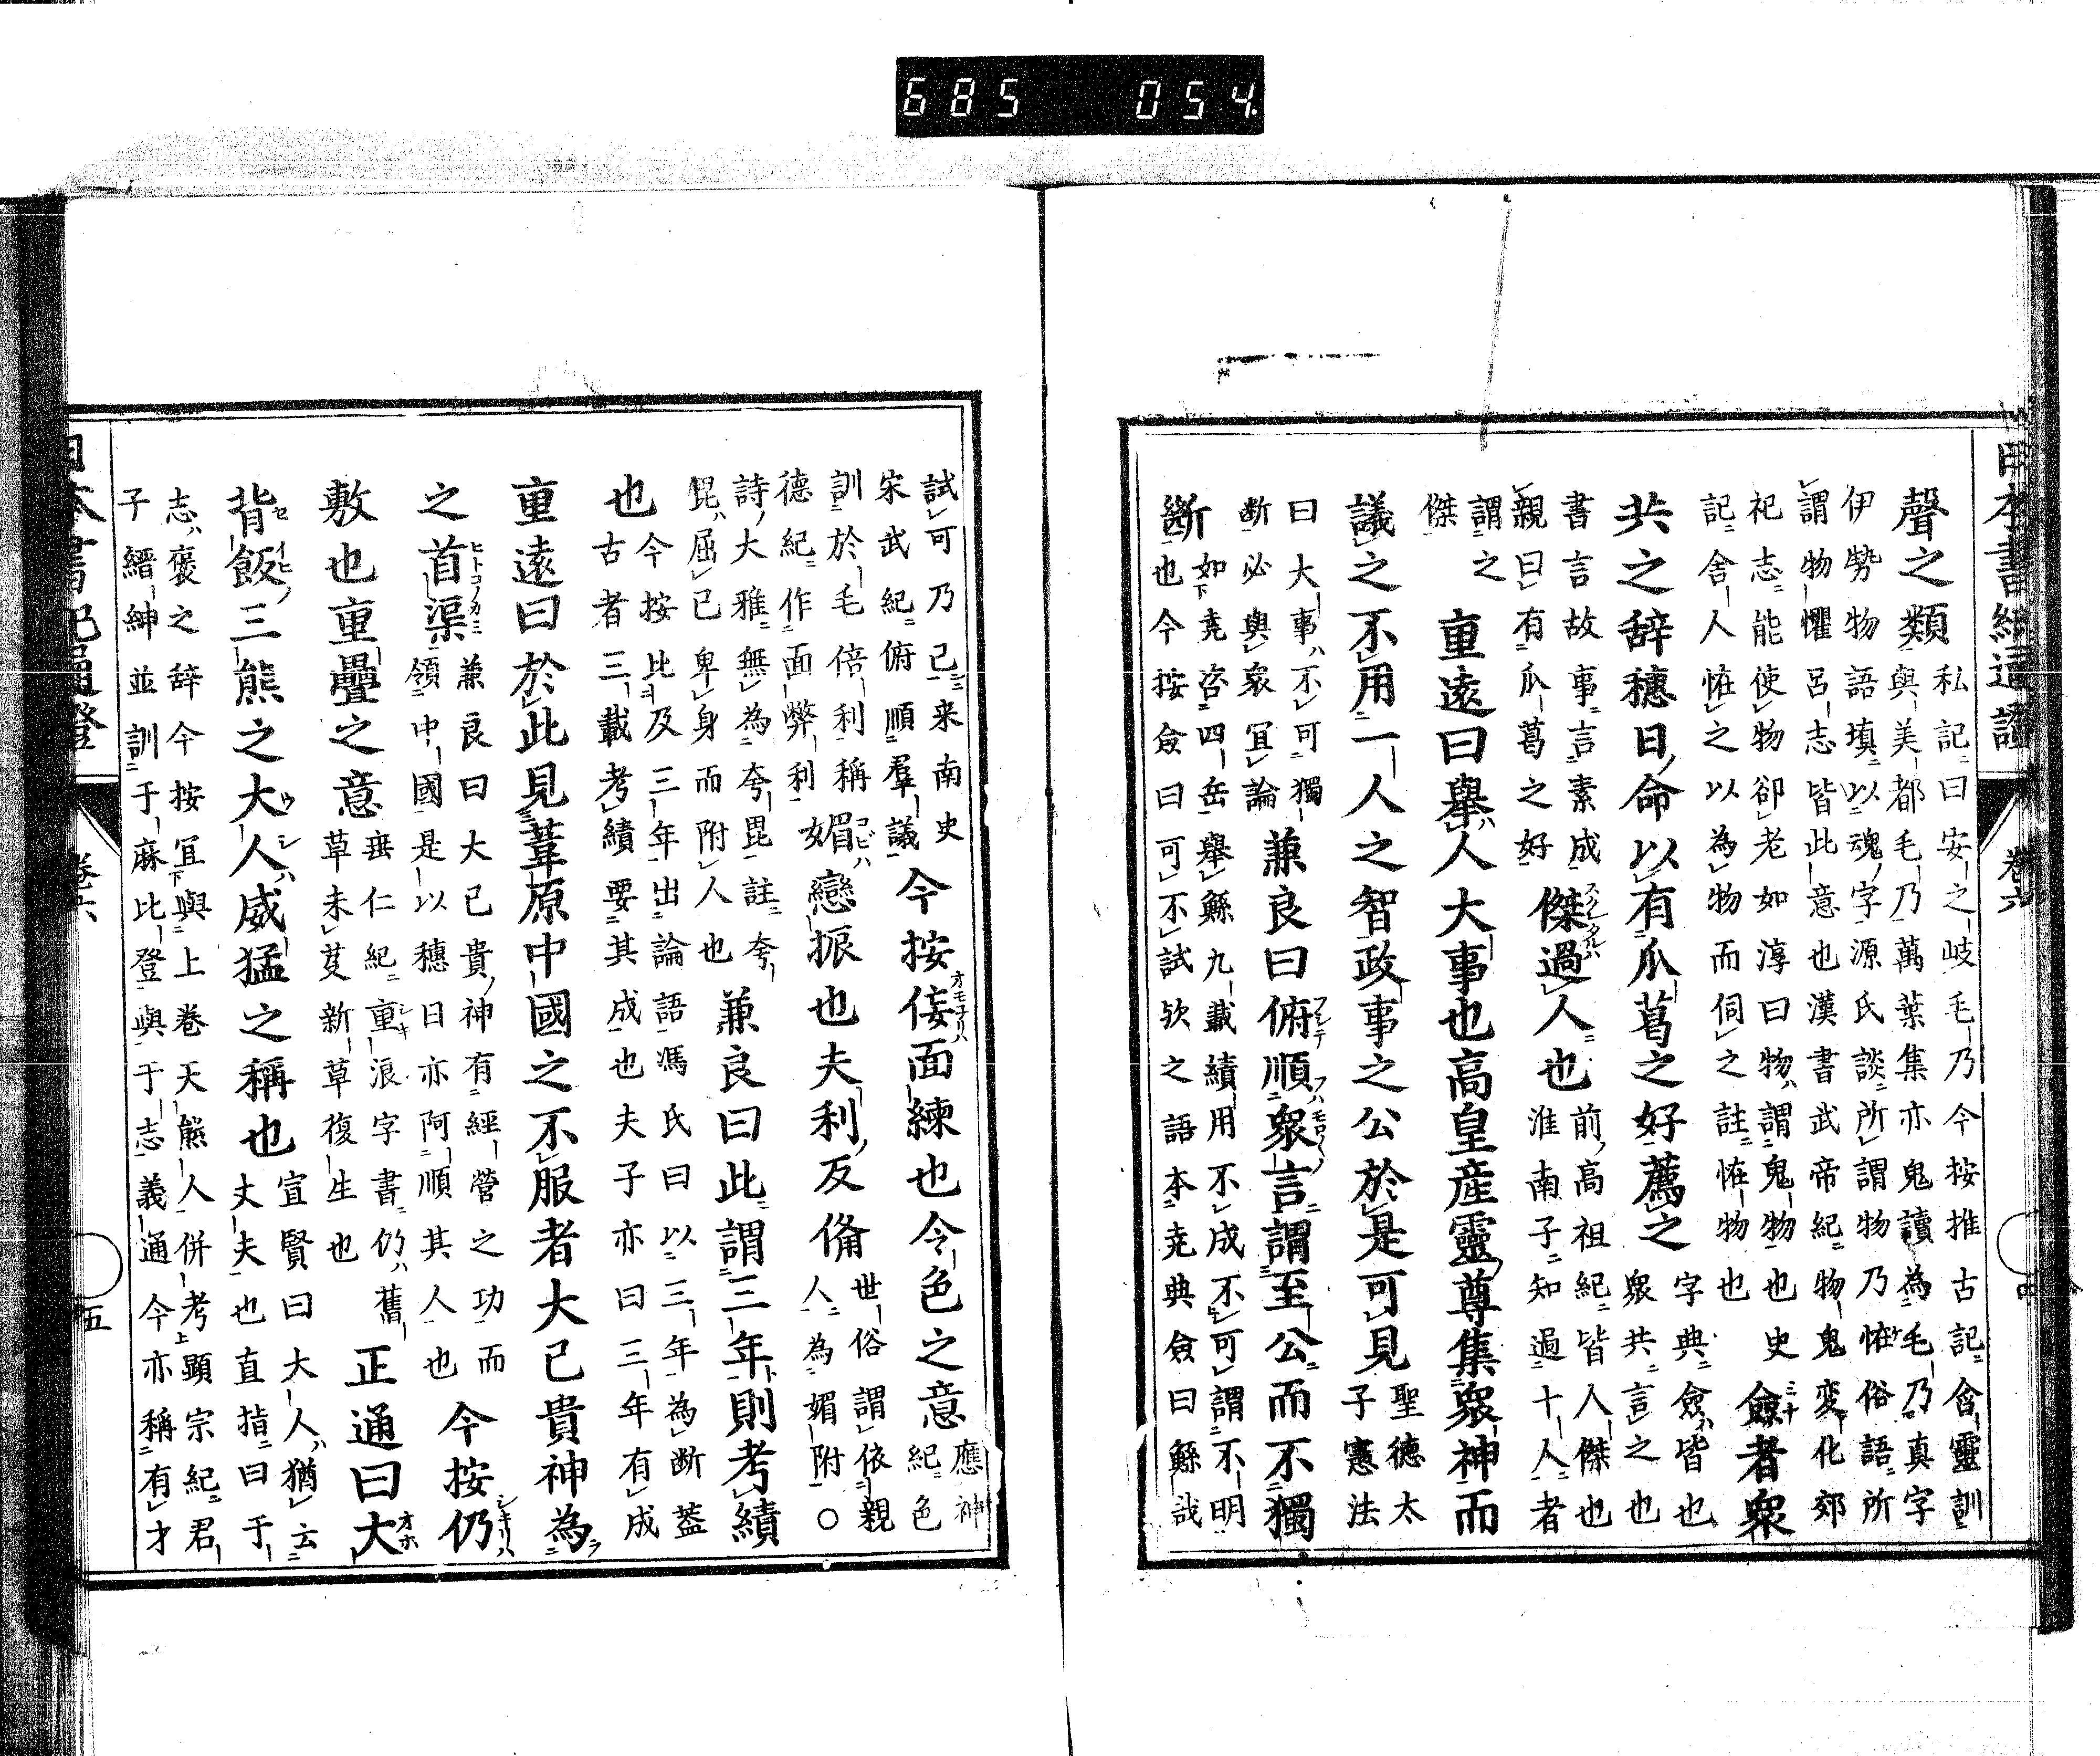 685 054
日本書紀通證
卷六
四
聲之類
私記曰安之岐毛乃今按推古記含靈訓
與美都毛乃萬葉集亦鬼讀為毛乃真字
伊勢物語填以魂字源氏談所謂物乃恠俗語所
謂物懼呂志皆此意也漢書武帝紀物鬼変化郊
祀志能使物卻老如淳曰物謂鬼物也史
記舍人恠之以為物而伺之註恠物也
僉者衆
共之辞穂日命以有瓜葛之好薦之
字典僉皆也
衆共言之也
書言故事言素成
親曰有瓜葛之好
傑過人也
前高祖紀皆人傑也
淮南子知過十人者
謂之
傑
重遠曰舉人大事也高皇産靈尊集衆神而
議之不用一人之智政事之公於是可見
聖德太
子憲法
曰大事不可獨
断必與衆宜論
兼良曰俯順衆言謂至公而不獨
断
如堯咨四岳舉鯀九載績用不成不可謂不明
也今按僉曰可不試欤之語本堯典僉曰鯀哉
試可乃已来南史
宋武紀俯順羣議
今按佞面練也令色之意
應神
紀色
訓於毛倍利稱
德紀作面弊利
媚戀振也夫利反備
世俗謂依親
人為媚附〇
詩大雅無為夸毘註夸
毘屈己卑身而附人也
兼良曰此謂三年則考績
也
今按比及三年出論語馮氏曰以三年為断蓋
古者三載考績要其成也夫子亦曰三年有成
重遠曰於此見葦原中國之不服者大己貴神為
之首渠
兼良曰大己貴神有經營之功而
領中國是以穗日亦阿順其人也
今按仍
敷也重疊之意
垂仁紀重浪字書仍舊
草未芟新草復生也
正通曰大
背飯三熊之大人威猛之稱也
宣賢曰大人猶云
丈夫也直指曰于
志褒之辞今按宜與上卷天熊人併考顯宗紀君
子縉紳並訓于麻比登與于志義通今亦稱有才
日本書紀通證
卷六
五